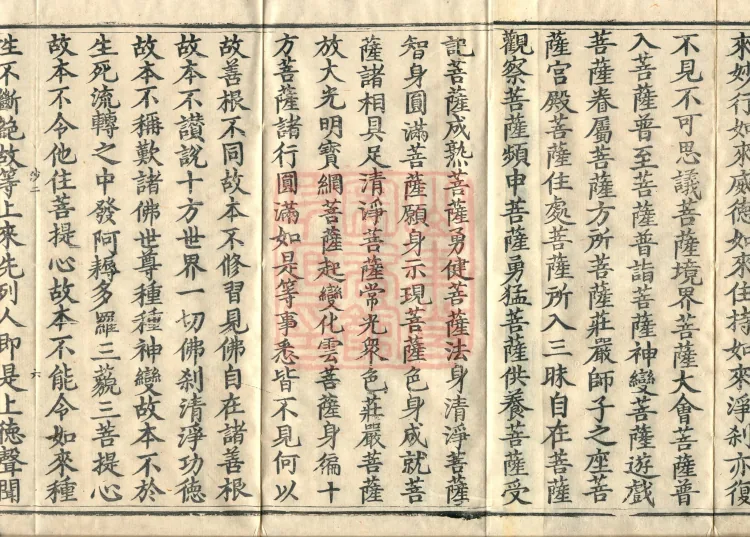 來妙行如來威德如來住持如來淨刹亦復
不見不可思議菩薩境界菩薩大會菩薩普
入菩薩普至菩薩普詣菩薩神變菩薩遊戲
菩薩眷屬菩薩方所菩薩莊嚴師子之座菩
薩宮殿菩薩住處菩薩所入三昧自在菩薩
觀察菩薩頻申菩薩勇猛菩薩供養菩薩受
記菩薩成熟菩薩勇健菩薩法身清淨菩薩
智身圓滿菩薩願身示現菩薩色身成就菩
薩諸相具足清淨菩薩常光眾色莊嚴菩薩
放大光明寶網菩薩起變化雲菩薩身徧十
方菩薩諸行圓滿如是等事悉皆不見何以
故善根不同故本不修習見佛自在諸善根
故本不讚說十方世界一切佛刹清淨功德
故本不稱歎諸佛世尊種種神變故本不於
生死流轉之中發阿耨多羅三藐三菩提心
故本不令他住菩提心故本不能令如來種
六
生不斷絕故等上來先列人即是上德聲聞